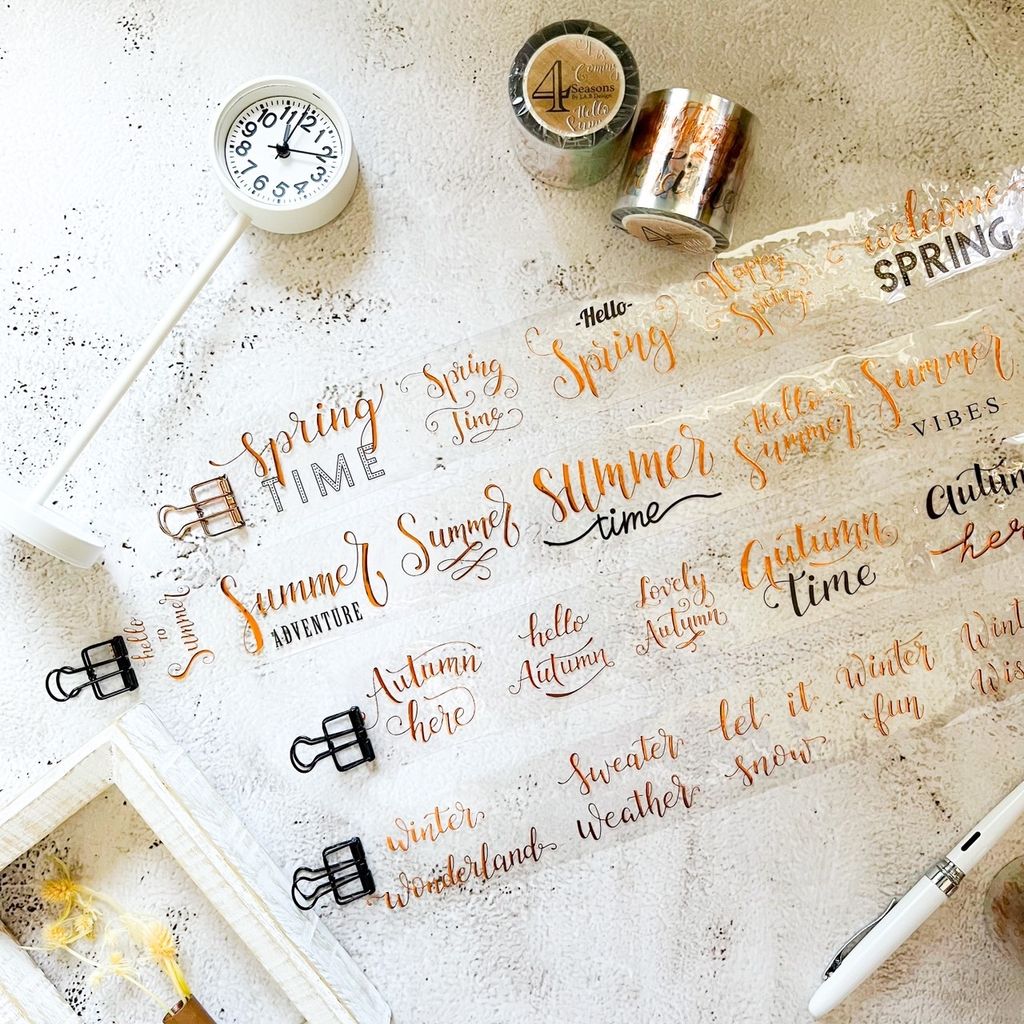 12
1
2
3
4
5
6
7
8
9
10
It is
Coming
4
Seasons
By LAB Design
Hello
4
welcome
SPRING
Happy
Spring
-Hello-
Spring
Spring
Time
Spring
TIME
Summer
VIBES
Hello
Summer
SUMMER
time
Summer
Summer
ADVENTURE
hello
TO
Summer
Autumn
here
hello
Autumn
Lovely
Autumn
Autumn
Time
winter
wonderland
Sweater
weather
let it
snow
Winter
fun